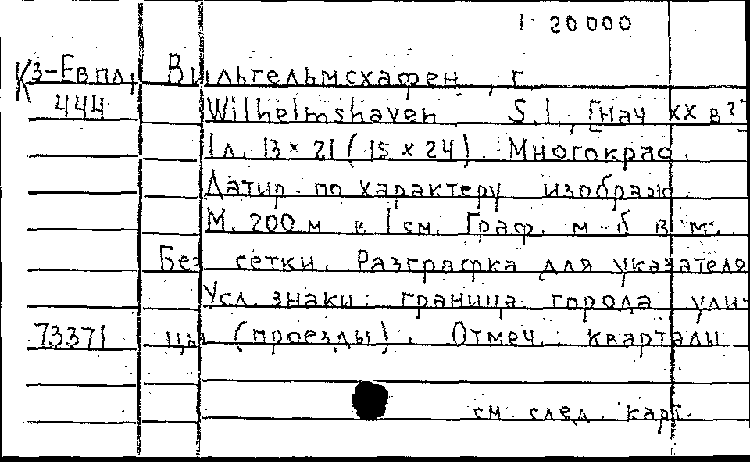 1 20000
К3-Евпл, Вильгельмсхафен, г.
444 Wilhelmshaven. S.l., [нач XX в?]
1 л. 13 × 21 (15 × 24). Многокрас.
Датир. по характеру изображ.
М. 200 м в 1 см. Граф. м-б в м.
Без сетки. Разграфка для указателя
Усл. знаки: граница города, ули-
73371 цы (проезды). Отмеч. кварталы
см. след. карт.